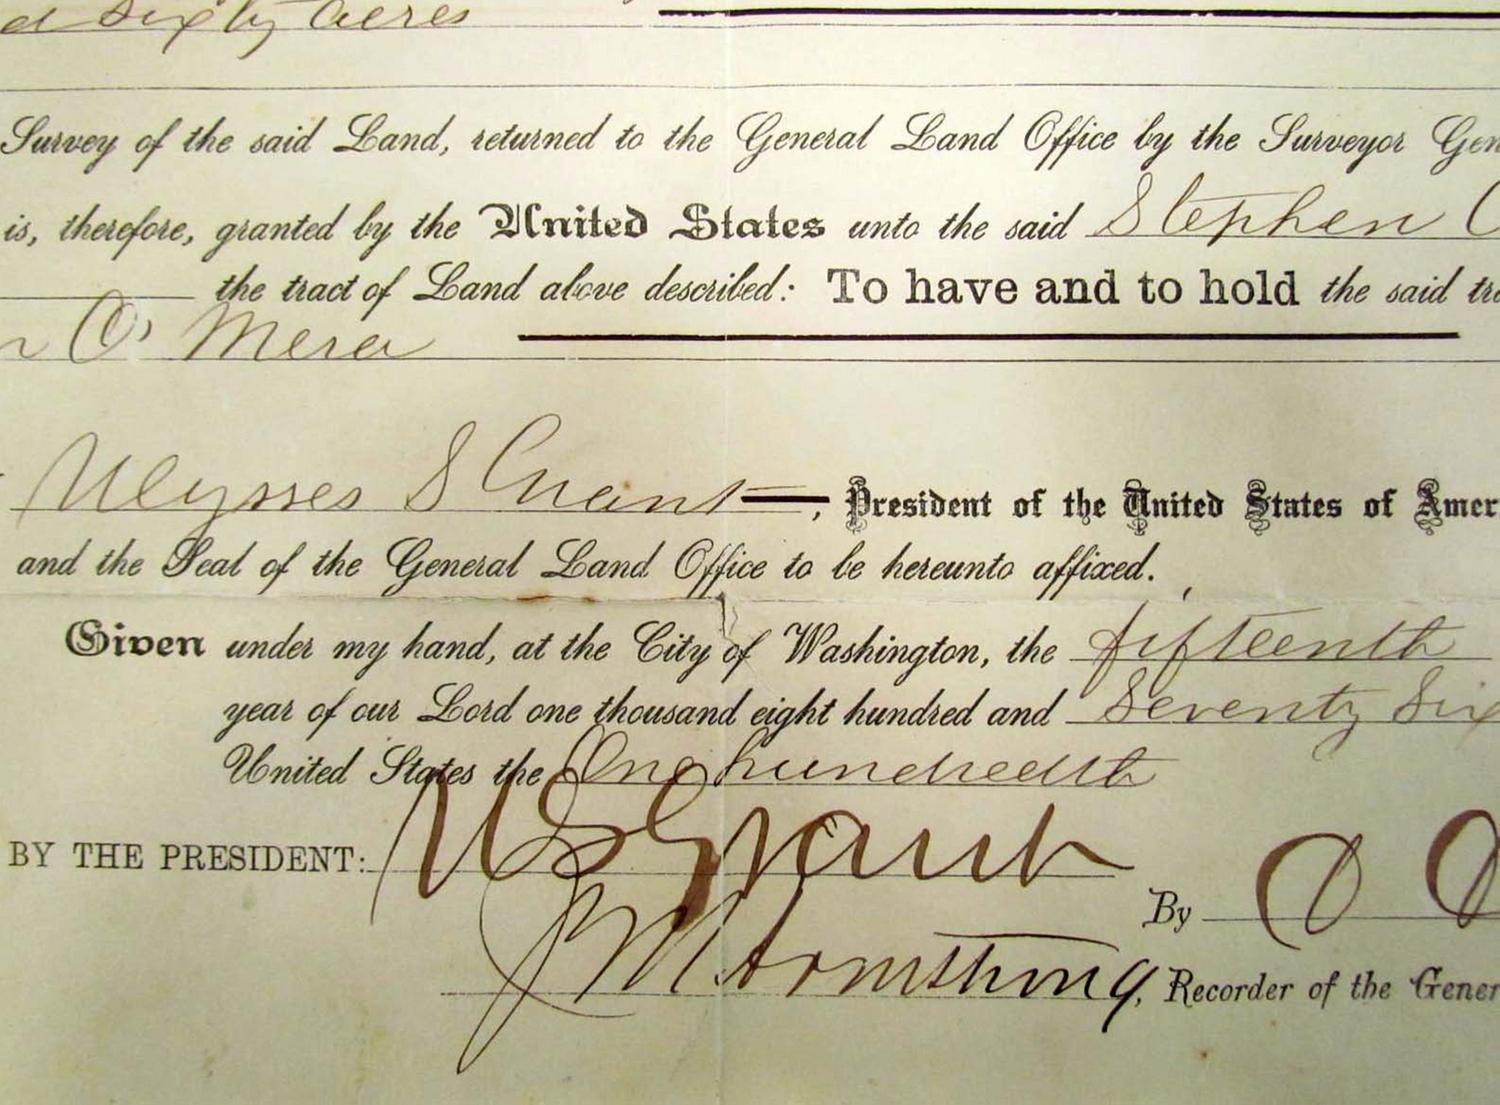 d Sixty Acres
Survey of the said Land, returned to the General Land Office by the Surveyor Gen
is, therefore, granted by the United States unto the said Stephen O
the tract of Land above described: To have and to hold the said tra
n O' Mera
Ulysses S Grant, President of the United States of Amer
and the Seal of the General Land Office to be hereunto affixed.
Given under my hand, at the City of Washington, the fifteenth
year of our Lord one thousand eight hundred and Seventy Six
United States the One hundredth
BY THE PRESIDENT: U S Grant
By D D
J M Armstrong, Recorder of the Gener